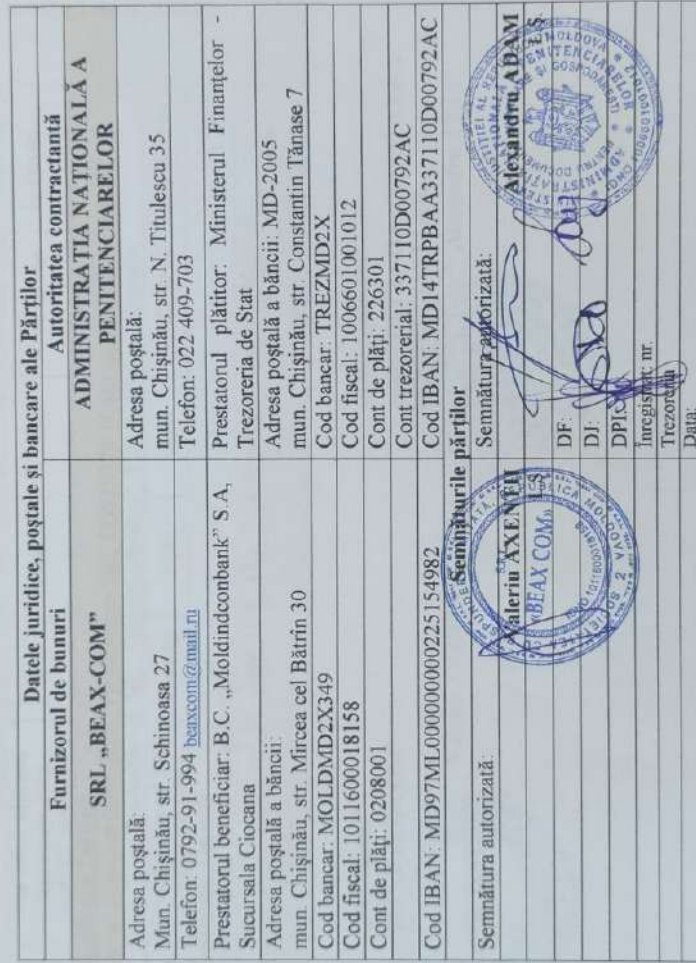 Datele juridice, poștale și bancare ale Părților
Furnizorul de bunuri
Autoritatea contractantă
SRL „BEAX-COM”
ADMINISTRAȚIA NAȚIONALĂ A
PENITENCIARELOR
Adresa poștală:
Mun. Chișinău, str. Schinoasa 27
Telefon: 0792-91-994 beaxcom@mail.ru
Adresa poștală:
mun. Chișinău, str. N. Titulescu 35
Telefon: 022 409-703
Prestatorul beneficiar: B.C. „Moldindconbank” S.A,
Sucursala Ciocana
Prestatorul plătitor: Ministerul Finanțelor -
Trezoreria de Stat
Adresa poștală a băncii:
mun. Chișinău, str. Mircea cel Bătrîn 30
Adresa poștală a băncii: MD-2005
mun. Chișinău, str. Constantin Tănase 7
Cod bancar: MOLDMD2X349
Cod bancar: TREZMD2X
Cod fiscal: 1011600018158
Cod fiscal: 1006601001012
Cont de plăți: 0208001
Cont de plăți: 226301
Cont trezorerial: 337110D00792AC
Cod IBAN: MD97ML000000000225154982
Cod IBAN: MD14TRPBAA337110D00792AC
Semnăturile părților
Semnătura autorizată:
Valeriu AXENTII
LS
«BEAX COM»
Semnătura autorizată:
Alexandru ADAM
LS
DF:
DJ:
DPIG
Înregistrat: nr.
Trezoreria
Data: